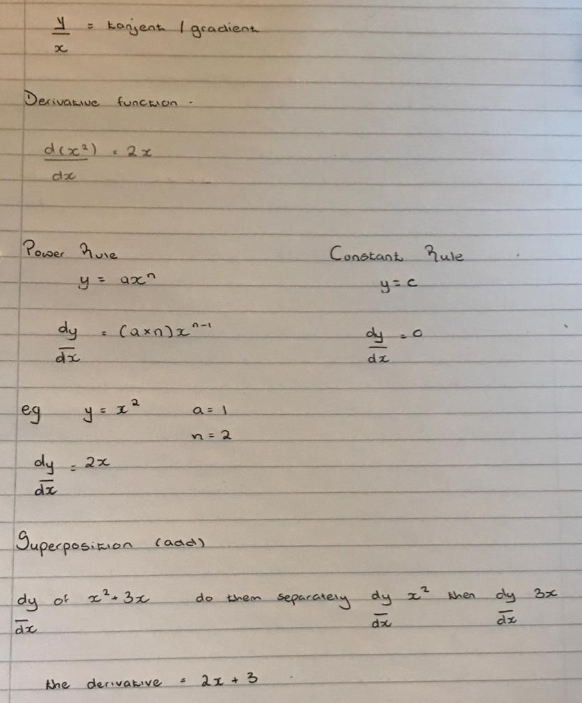 y/x = tanjent / gradient
Derivative function.
d(x²)/dx = 2x
Power Rule
Constant Rule
y = axⁿ
y = c
dy/dx = (a×n)xⁿ⁻¹
dy/dx = 0
eg y = x² a = 1
n = 2
dy/dx = 2x
Superposition (add)
dy/dx of x² + 3x do them separately dy/dx x² then dy/dx 3x
the derivative = 2x + 3